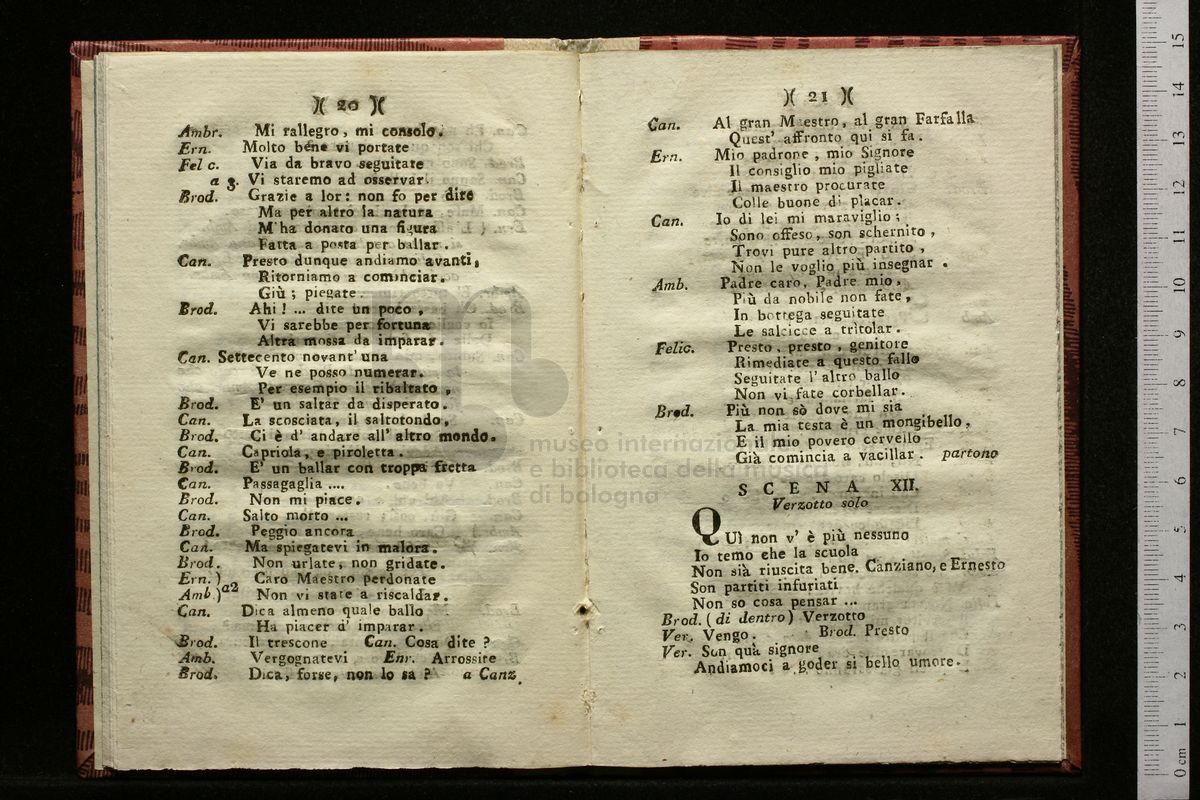 )( 20 )(
Ambr. Mi rallegro, mi consolo.
Ern. Molto béne vi portate
Fel c. Via da bravo seguitate
a 3. Vi staremo ad osservar.
Brod. Grazie a lor: non fo per dire
Ma per altro la natura
M'ha donato una figura
Fatta a posta per ballar.
Can. Presto dunque andiamo avanti,
Ritorniamo a cominciar.
Giù; piegate.
Brod. Ahi! ... dite un poco,
Vi sarebbe per fortuna
Altra mossa da imparar.
Can. Settecento novant'una
Ve ne posso numerar.
Per esempio il ribaltato,
Brod. E' un saltar da disperato.
Can. La scosciata, il saltotondo,
Brod. Ci è d' andare all' altro mondo.
Can. Capriola, e piroletta.
Brod. E' un ballar con troppa fretta
Can. Passagaglia ....
Brod. Non mi piace.
Can. Salto morto ...
Brod. Peggio ancora
Can. Ma spiegatevi in malora.
Brod. Non urlate, non gridate.
Ern.) Caro Maestro perdonate
Amb.) a2 Non vi state a riscaldar.
Can. Dica almeno quale ballo
Ha piacer d' imparar.
Brod. Il trescone Can. Cosa dite?
Amb. Vergognatevi Enr. Arrossite
Brod. Dica, forse, non lo sa? a Canz.
)( 21 )(
Can. Al gran Maestro, al gran Farfalla
Quest' affronto qui si fa.
Ern. Mio padrone, mio Signore
Il consiglio mio pigliate
Il maestro procurate
Colle buone di placar.
Can. Io di lei mi maraviglio;
Sono offeso, son schernito,
Trovi pure altro partito,
Non le voglio più insegnar.
Amb. Padre caro, Padre mio,
Più da nobile non fate,
In bottega seguitate
Le salcicce a tritolar.
Felic. Presto, presto, genitore
Rimediate a questo fallo
Seguitate l' altro ballo
Non vi fate corbellar.
Brod. Più non sò dove mi sia
La mia testa è un mongibello,
E il mio povero cervello
Già comincia a vacillar. partono
SCENA XII.
Verzotto solo
QUì non v' è più nessuno
Io temo che la scuola
Non sià riuscita bene. Canziano, e Ernesto
Son partiti infuriati
Non so cosa pensar ...
Brod. (di dentro) Verzotto
Ver. Vengo. Brod. Presto
Ver. Son quà signore
Andiamoci a goder si bello umore.
museo internazionale
e biblioteca della musica
di bologna
0 cm 1 2 3 4 5 6 7 8 9 10 11 12 13 14 15